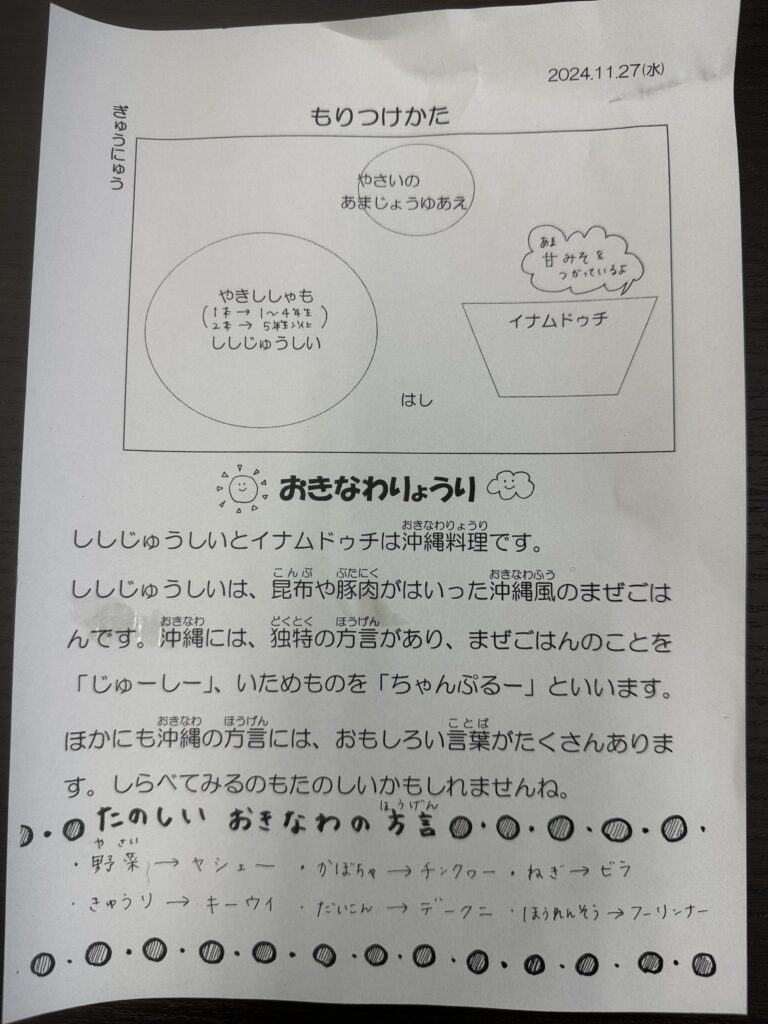 2024.11.27(水)
もりつけかた
ぎゅうにゅう
やさいの
あまじょうゆあえ
あま
甘みそを
つかっているよ
やきししゃも
(1本 → 1〜4年生
2本 → 5年生以上)
ししじゅうしい
イナムドゥチ
はし
おきなわりょうり
おきなわりょうり
ししじゅうしいとイナムドゥチは沖縄料理です。
こんぶ ぶたにく おきなわふう
ししじゅうしいは、昆布や豚肉がはいった沖縄風のまぜごは
おきなわ どくとく ほうげん
んです。沖縄には、独特の方言があり、まぜごはんのことを
「じゅーしー」、いためものを「ちゃんぷるー」といいます。
おきなわ ほうげん ことば
ほかにも沖縄の方言には、おもしろい言葉がたくさんありま
す。しらべてみるのもたのしいかもしれませんね。
ほうげん
たのしい おきなわの方言
やさい
・野菜 → ヤシェー ・かぼちゃ → チンクヮー ・ねぎ → ビラ
・きゅうり → キーウイ ・だいこん → デークニ ・ほうれんそう → フーリンナー